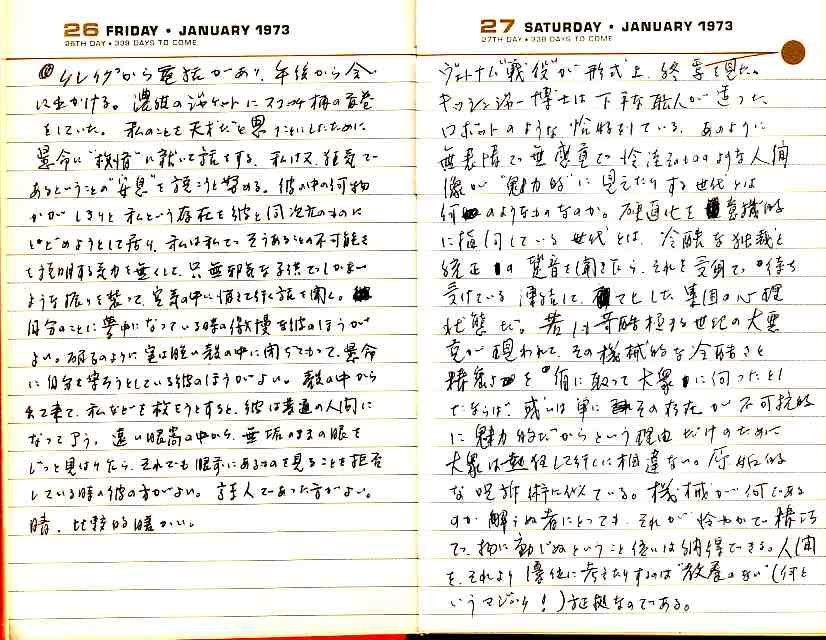 26 FRIDAY • JANUARY 1973
26TH DAY • 339 DAYS TO COME
から電話があり、午後から会い
に出かける。濃紺のジャケットに
をしていた。私のことを天才だと思うことにしたために
懸命に に就いて話をする。私は又、狂気で
あるということの を説こうと努める。彼の中の何物
かがしきりと私という存在を彼と同次元のものに
とどめようとして居り、私は私でそうあることの不可能さ
を説明する気力を無くして、只無邪気な子供でしかない
ような振りを装って、空気の中に消えて行く話を聞く。
自分のことに夢中になっている時の傲慢な彼のほうが
よい。 のように実は暗い殻の中に閉じこもって、懸命
に自分を守ろうとしている彼のほうがよい。殻の中から
出て来て、私などを救おうとすると、彼は普通の人間に
なって了う。遠い眼窩の中から、無垢のままの眼を
じっと見はりながら、それでも眼前にあるものを見ることを拒否
している時の彼の方がよい。 人であった方がよい。
晴、比較的暖かい。
27 SATURDAY • JANUARY 1973
27TH DAY • 338 DAYS TO COME
ヴェトナム“戦役”が形式上、終焉を見た。
キッシンジャー博士は下手な職人が造った
ロボットのような恰好をしている。あのように
無表情で無感動で冷淡そのもののような人間
像が“魅力的”に見えたりする世代とは
何のようなものなのか。硬直化を意識的
に指向している世代とは、冷酷な独裁と
統正の跫音を聞きながら、それを受身で待ち
受けている凍結した集団の心理
状態だ。若し苛酷極まる世紀の大悪
党が現われて、その機械的な冷酷さと
精密さを に取って大衆に向ったとし
たならば、或いは単にその存在が不可抗的
に魅力的だからという理由だけのために
大衆は熱狂して行くに相違ない。原始的
な呪術に似ている。機械が何である
のか解らぬ者にとっても、それが冷やかで精巧
で、物に動じぬということ位いは納得できる。人間
を、それより優位に考えたりするのは“教養のない”（何と
いうマジック！）証拠なのである。